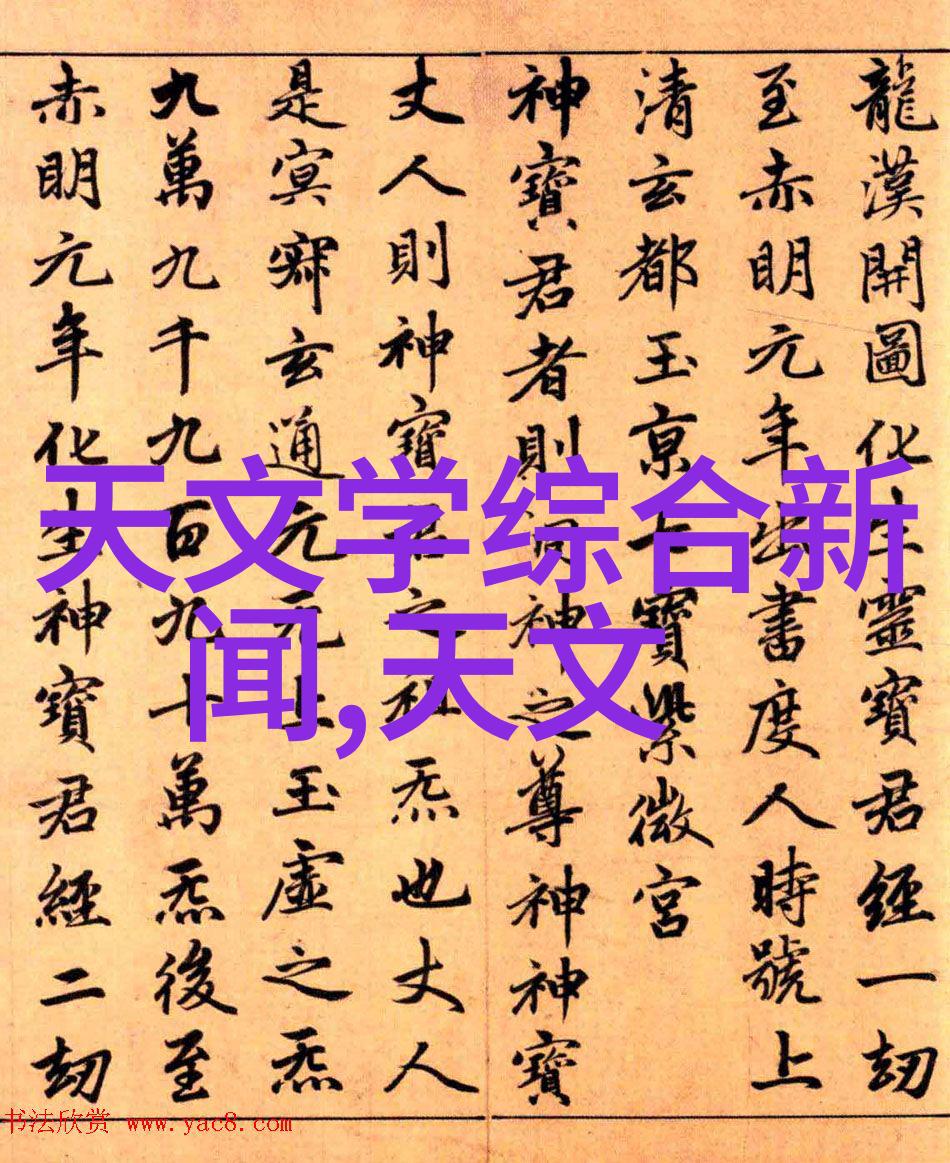 龍漢開圖化生靈寶君經一劫
至赤明元年出書度人時號上
清玄都玉京七寶紫微宮
神寶君者則洞神之尊神神寶
丈人則神寶君之祖炁也丈人
是冥寂玄通元无上玉虛之炁
九萬九千九百九十萬炁後至
赤明元年化生神寶君經二劫
天文学综合新
闻,天文
书法欣赏 www.yac8.com